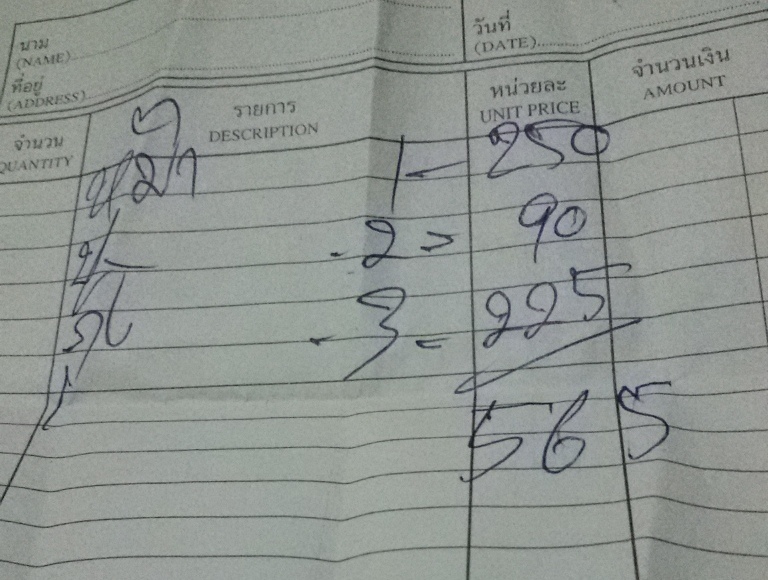 นาม
(NAME)
วันที่
(DATE)
ที่อยู่
(ADDRESS)
จำนวน
QUANTITY
รายการ
DESCRIPTION
หน่วยละ
UNIT PRICE
จำนวนเงิน
AMOUNT
1 - 250
- 2 = 90
- 3 = 225
565